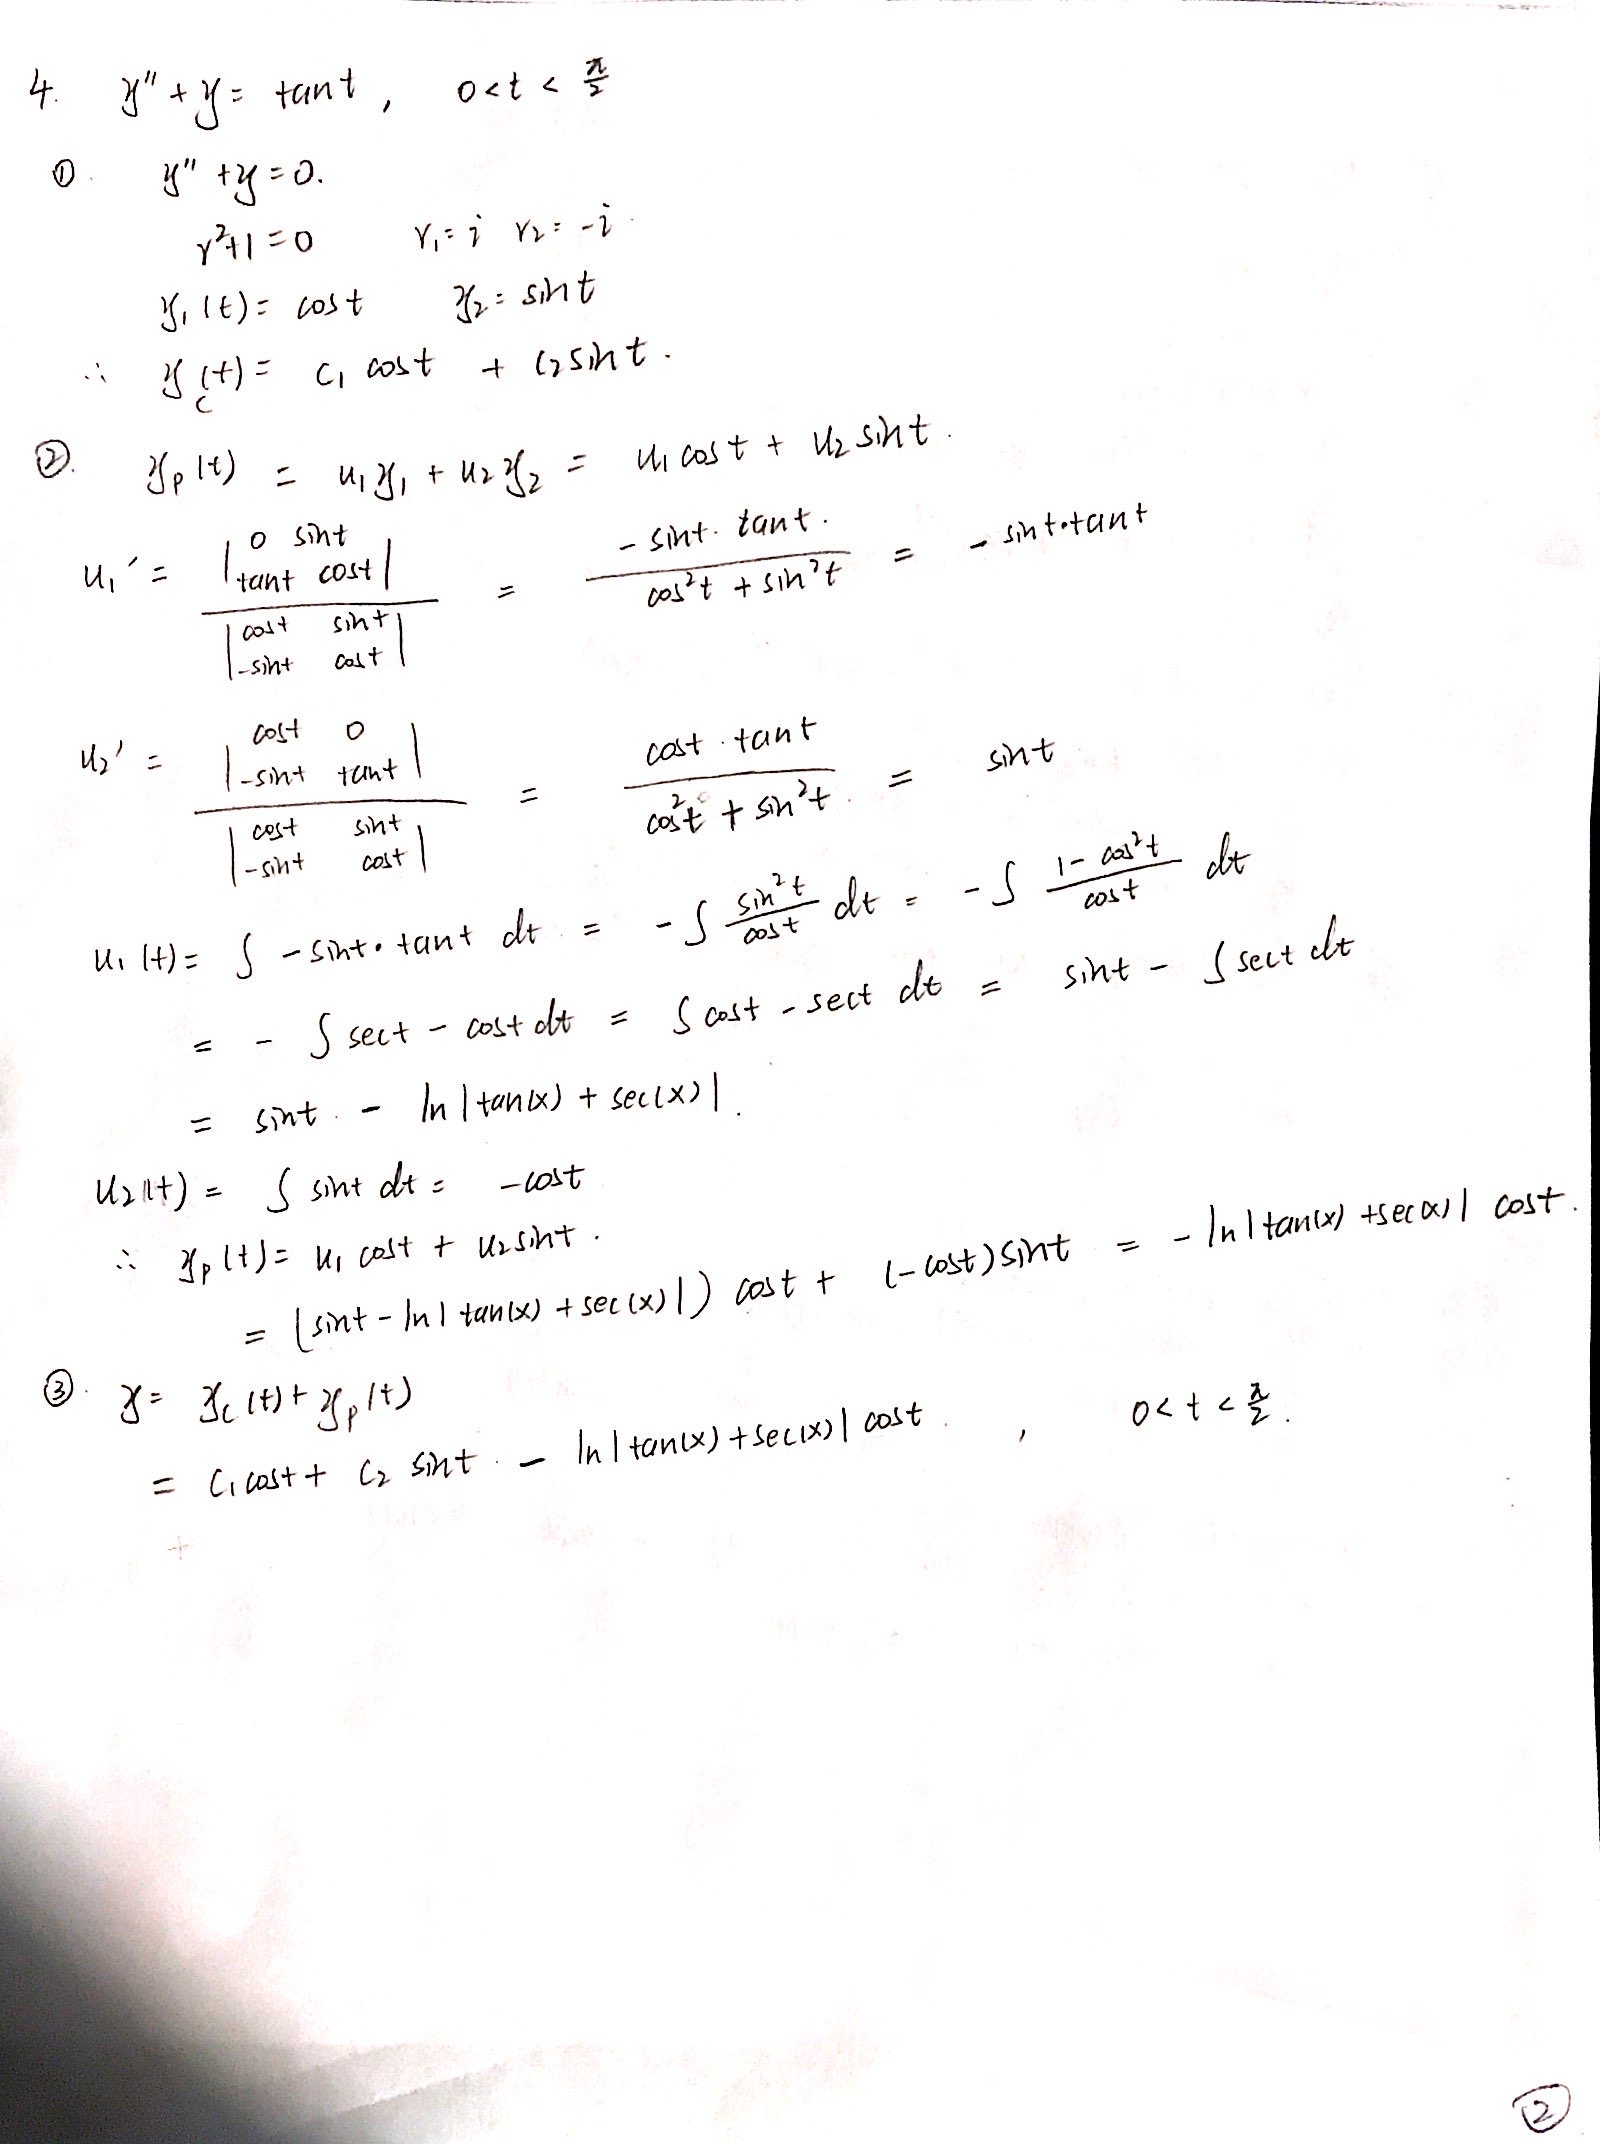 4. y" + y = tant, 0<t<π/2
①. y" + y = 0.
r²+1=0 r₁=i r₂=-i
y₁(t)= cost y₂= sint
∴ y_c(t)= C₁ cost + C₂ sint.
②. y_p(t) = u₁y₁ + u₂y₂ = u₁ cost + u₂ sint.
u₁' = |0 sint; tant cost| / |cost sint; -sint cost| = (-sint·tant.)/(cos²t + sin²t) = -sint·tant
u₂' = |cost 0; -sint tant| / |cost sint; -sint cost| = (cost·tant)/(cos²t + sin²t.) = sint
u₁(t)= ∫ -sint·tant dt = -∫ sin²t/cost dt = -∫ (1-cos²t)/cost dt
= - ∫ sect - cost dt = ∫ cost - sect dt = sint - ∫ sect dt
= sint. - ln|tan(x) + sec(x)|.
u₂(t) = ∫ sint dt = -cost
∴ y_p(t)= u₁ cost + u₂ sint.
= (sint - ln|tan(x) + sec(x)|) cost + (-cost)sint = -ln|tan(x) + sec(x)| cost.
③. y= y_c(t) + y_p(t)
= C₁ cost + C₂ sint. - ln|tan(x) + sec(x)| cost. , 0<t<π/2.
②